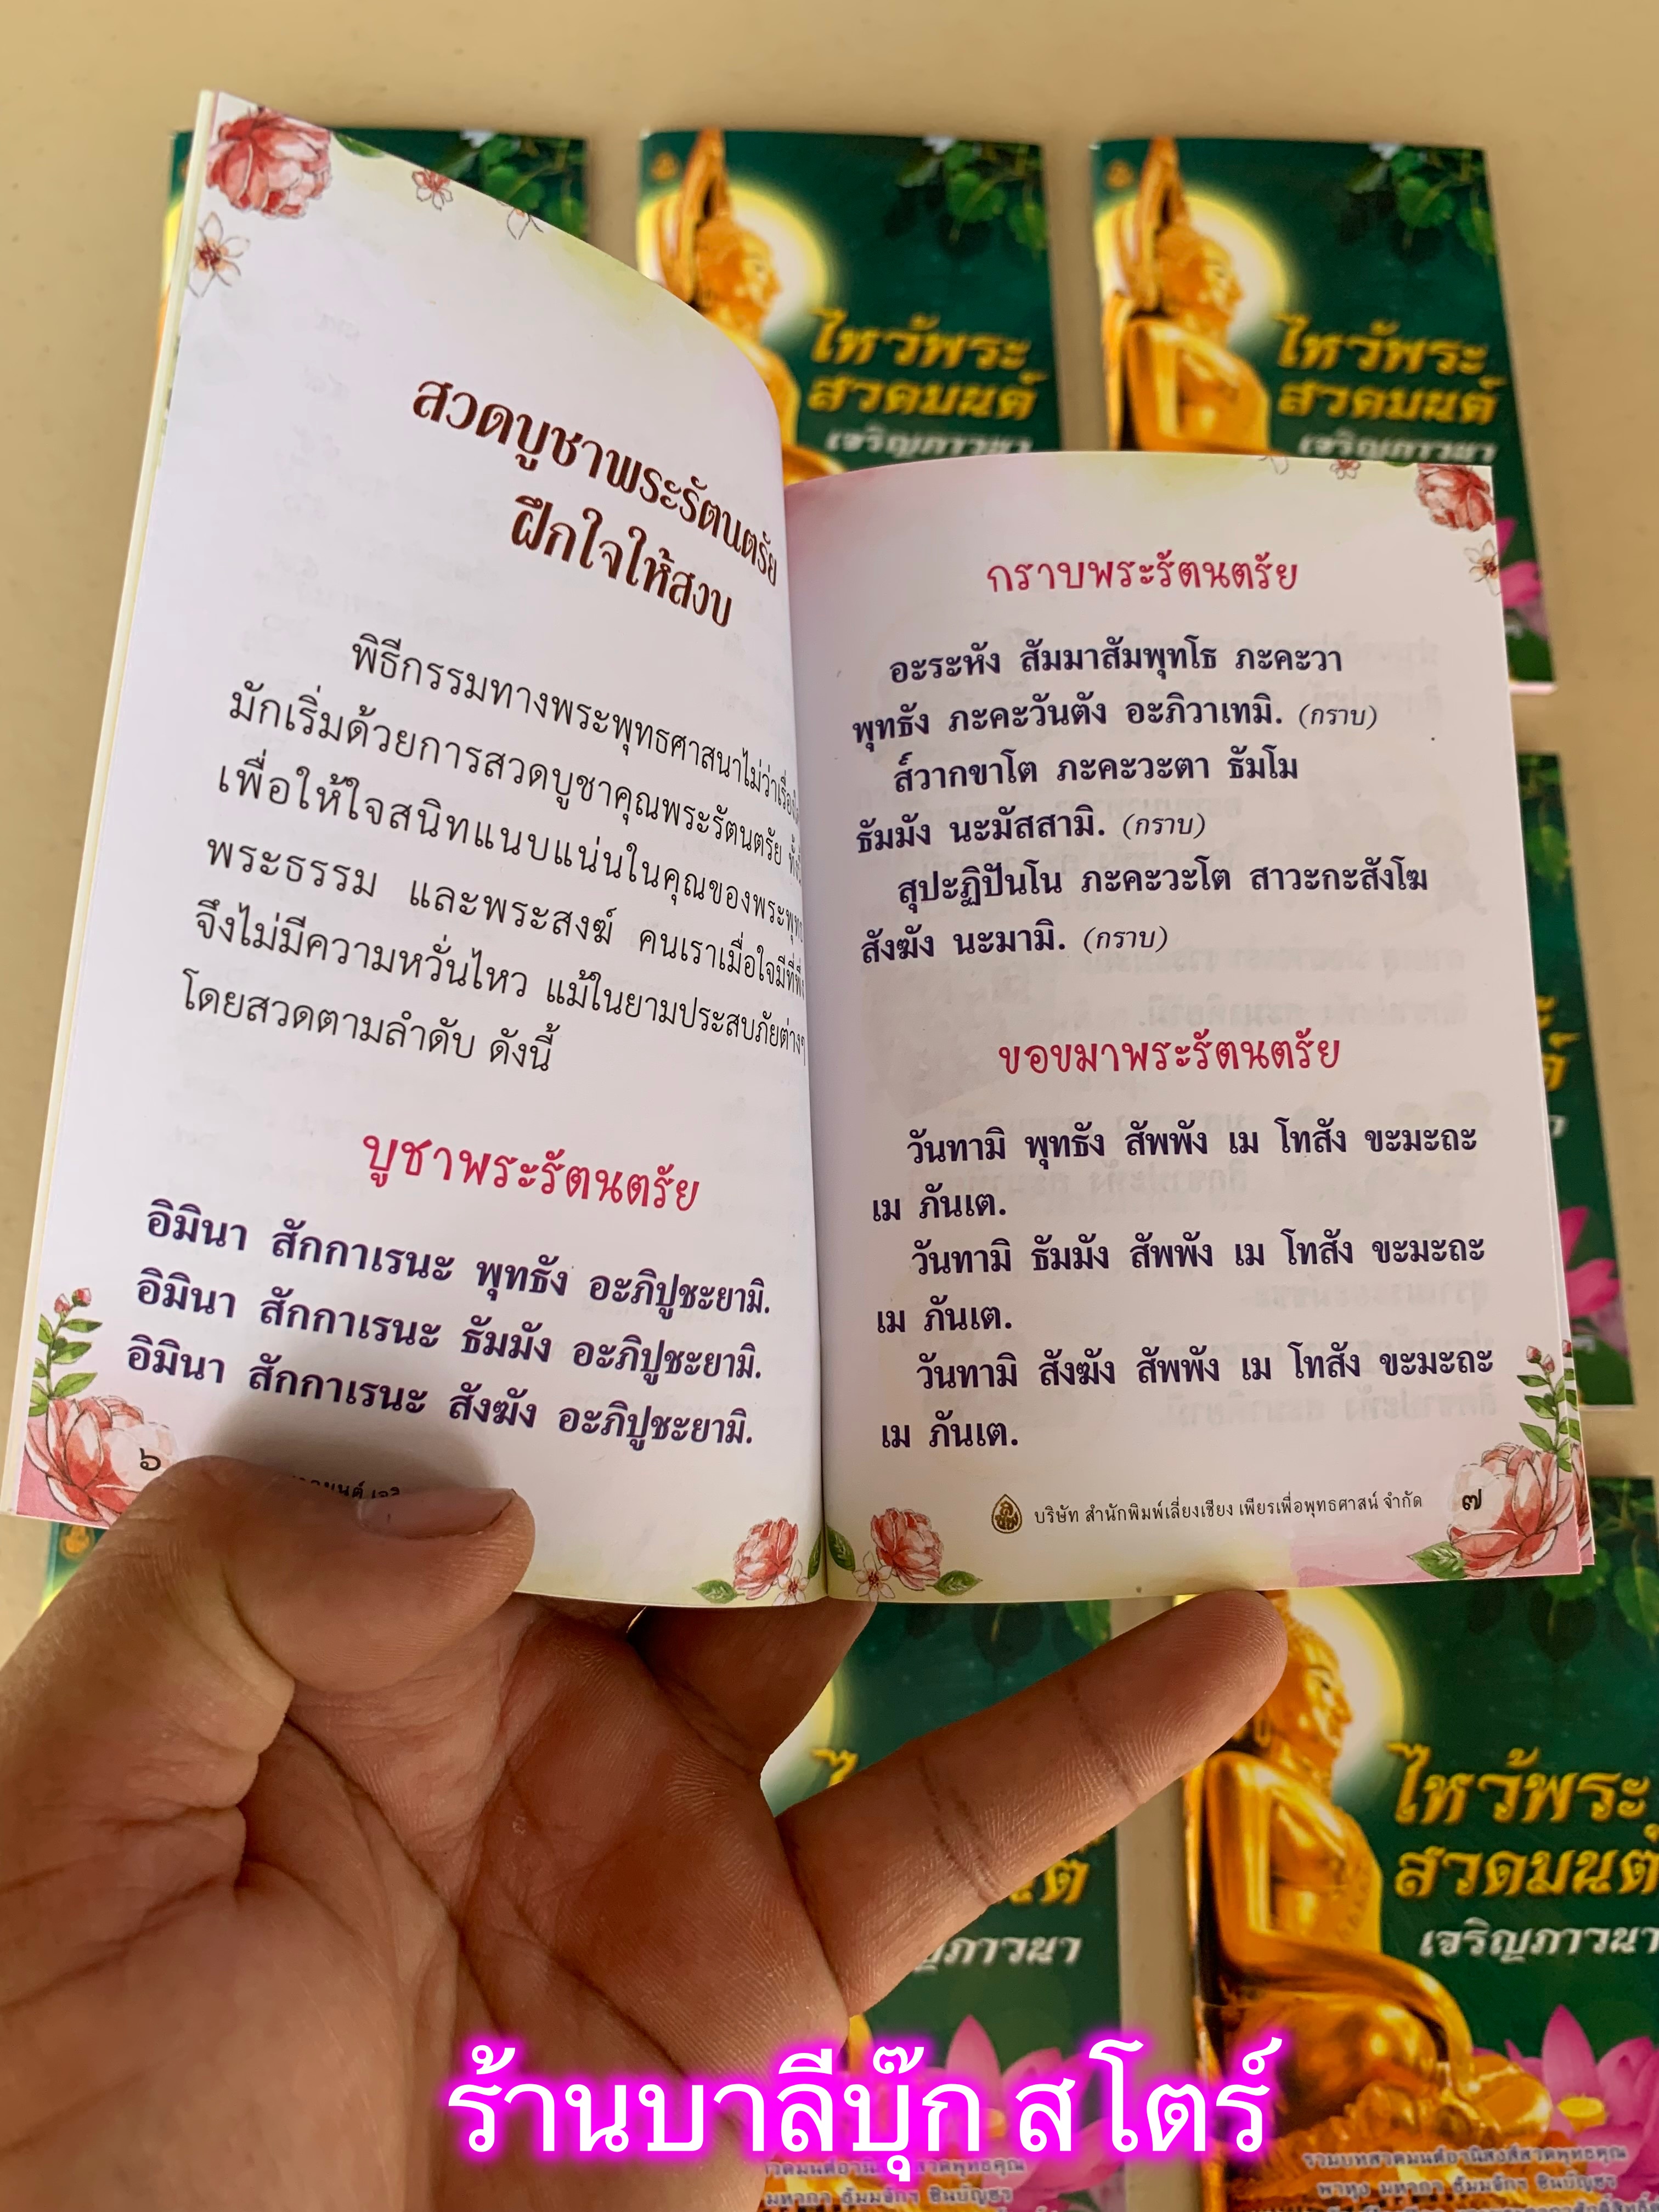 สวดบูชาพระรัตนตรัย
ฝึกใจให้สงบ
พิธีกรรมทางพระพุทธศาสนาไม่ว่าเรื่อง
มักเริ่มด้วยการสวดบูชาคุณพระรัตนตรัย
เพื่อให้ใจสนิทแนบแน่นในคุณของพระพุทธ
พระธรรม และพระสงฆ์ คนเราเมื่อใจมีที่พึ่ง
จึงไม่มีความหวั่นไหว แม้ในยามประสบภัยต่างๆ
โดยสวดตามลำดับ ดังนี้
บูชาพระรัตนตรัย
อิมินา สักกาเรนะ พุทธัง อะภิปูชะยามิ.
อิมินา สักกาเรนะ ธัมมัง อะภิปูชะยามิ.
อิมินา สักกาเรนะ สังฆัง อะภิปูชะยามิ.
๖
กราบพระรัตนตรัย
อะระหัง สัมมาสัมพุทโธ ภะคะวา
พุทธัง ภะคะวันตัง อะภิวาเทมิ. (กราบ)
ส๎วากขาโต ภะคะวะตา ธัมโม
ธัมมัง นะมัสสามิ. (กราบ)
สุปะฏิปันโน ภะคะวะโต สาวะกะสังโฆ
สังฆัง นะมามิ. (กราบ)
ขอขมาพระรัตนตรัย
วันทามิ พุทธัง สัพพัง เม โทสัง ขะมะถะ
เม ภันเต.
วันทามิ ธัมมัง สัพพัง เม โทสัง ขะมะถะ
เม ภันเต.
วันทามิ สังฆัง สัพพัง เม โทสัง ขะมะถะ
เม ภันเต.
บริษัท สำนักพิมพ์เลี่ยงเชียง เพียรเพื่อพุทธศาสน์ จำกัด ๗
ไหว้พระ
สวดมนต์
เจริญภาวนา
ไหว้พระ
สวดมนต์
เจริญภาวนา
ไหว้พระ
สวดมนต์
เจริญภาวนา
รวมบทสวดมนต์อานิสงส์สวดพุทธคุณ
พาหุง มหากา ธัมมจักฯ ชินบัญชร
มหากา ธัมมจักฯ ชินบัญชร
ร้านบาลีบุ๊ก สโตร์